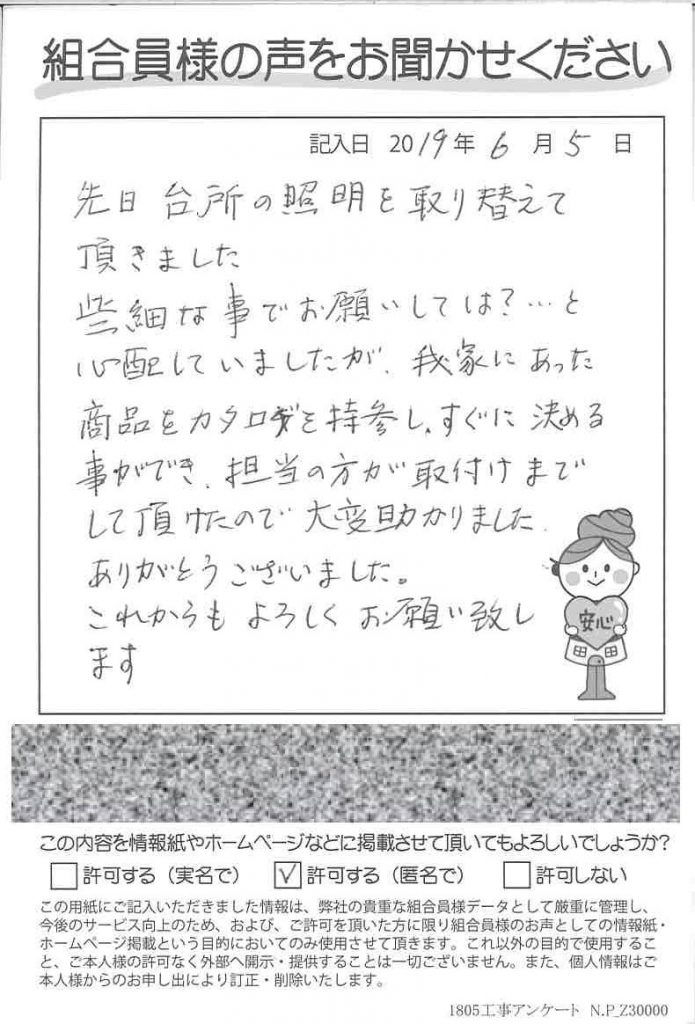 組合員様の声をお聞かせください
記入日 2019年 6月 5日
先日 台所の照明を取り替えて
頂きました
些細な事でお願いしては?…と
心配していましたが、我家にあった
商品をカタログを持参し、すぐに決める
事ができ、担当の方が取付けまで
して頂けたので大変助かりました。
ありがとうございました。
これからもよろしくお願い致し
ます
安心
この内容を情報紙やホームページなどに掲載させて頂いてもよろしいでしょうか?
□許可する(実名で) ☑許可する(匿名で) □許可しない
この用紙にご記入いただきました情報は、弊社の貴重な組合員様データとして厳重に管理し、
今後のサービス向上のため、および、ご許可を頂いた方に限り組合員様のお声としての情報紙・
ホームページ掲載という目的においてのみ使用させて頂きます。これ以外の目的で使用するこ
と、ご本人様の許可なく外部へ開示・提供することは一切ございません。また、個人情報はご
本人様からのお申し出により訂正・削除いたします。
1805工事アンケート N.P_Z30000